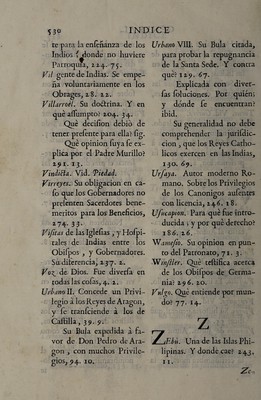 530 INDICE
te para la enseñanza de los
Indios donde no huviere
Patroquia, 224. 75.
Vil gente de Indias. Se empe-
ña voluntariamente en los
Obrages, 28. 12.
Villarroel. Su doctrina. Y en
què assumpto? 204. 34.
Què decision debiò de
tener presente para ella? sig.
Què opinion suya se ex-
plica por el Padre Murillo?
291. 13.
Vindicta. Vid. Piedad.
Virreyes. Su obligacion en ca-
so que los Gobernadores no
presenten Sacerdotes bene-
meritos para los Beneficios,
274. 33.
Visitas de las Iglesias, y Hospi-
tales de Indias entre los
Obispos, y Gobernadores.
Su diferencia, 237. 2.
Voz de Dios. Fue diversa en
todas las cosas, 4. 2.
Urbano II. Concede un Privi-
legio à los Reyes de Aragon,
y se transciende à los de
Castilla, 39. 9.
Su Bula expedida à fa-
vor de Don Pedro de Ara-
gon, con muchos Privile-
gios, 94. 10.
Urbano VIII. Su Bula citada,
para probar la repugnancia
de la Santa Sede. Y contra
què? 129. 67.
Explicada con diver-
sas soluciones. Por quièn;
y dònde se encuentran?
ibid.
Su generalidad no debe
comprehender la jurisdic-
cion, que los Reyes Catho-
licos exercen en las Indias,
130. 69.
Ursaya. Autor moderno Ro-
mano. Sobre los Privilegios
de los Canonigos ausentes
con licencia, 246. 18.
Usucapion. Para què fue intro-
ducida; y por què derecho?
286. 26.
Wamesio. Su opinion en pun-
to del Patronato, 71. 5.
Winstler. Què testifica acerca
de los Obispos de Germa-
nia? 296. 20.
Vulgo. Què entiende por mun-
do? 77. 14.
Z
ZEbù. Una de las Islas Phi-
lipinas. Y donde cae? 243.
11.
Ze-